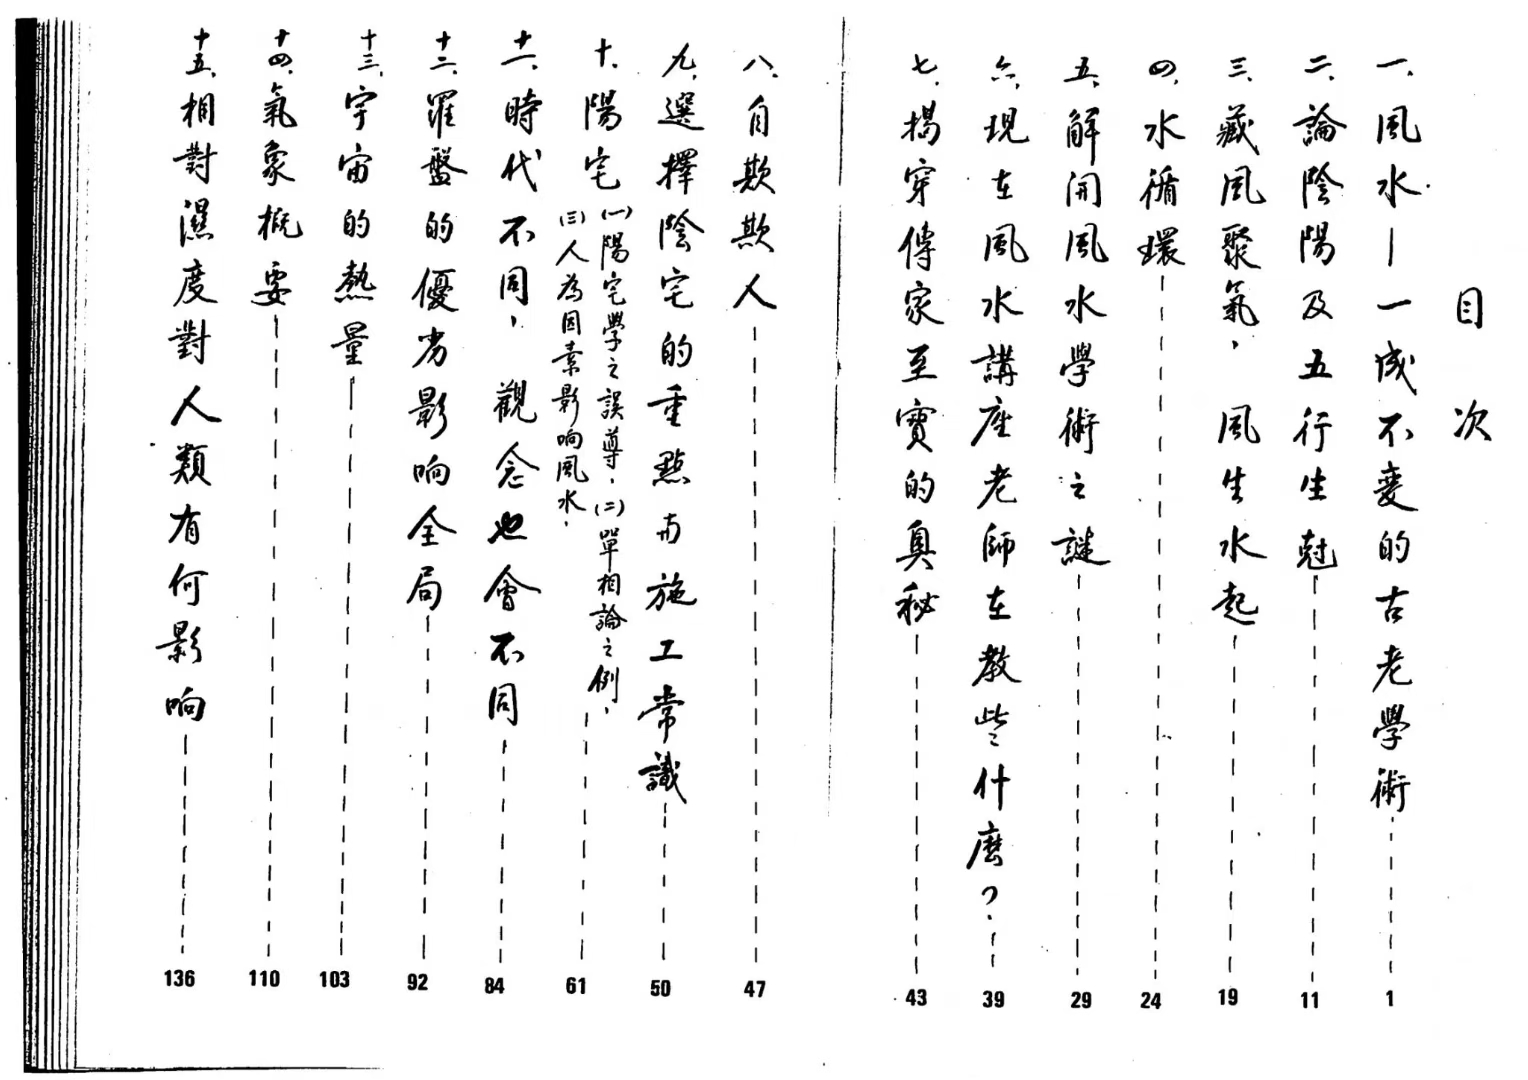 目次
一、風水—一成不变的古老學術 1
二、論陰陽及五行生尅 11
三、藏風聚氣，風生水起 19
四、水循環 24
五、解開風水學術之謎 29
六、現在風水講座老師在教些什麽？ 39
七、揭穿傳家至寶的奧秘 43
八、自欺欺人 47
九、選擇陰宅的重點与施工常識 50
十、陽宅(一)陽宅學之誤導，(二)單相論之例，
(三)人為因素影响風水， 61
十一、時代不同，觀念也會不同 84
十二、羅盤的優劣影响全局 92
十三、宇宙的熱量 103
十四、氣象概要 110
十五、相對濕度對人類有何影响 136